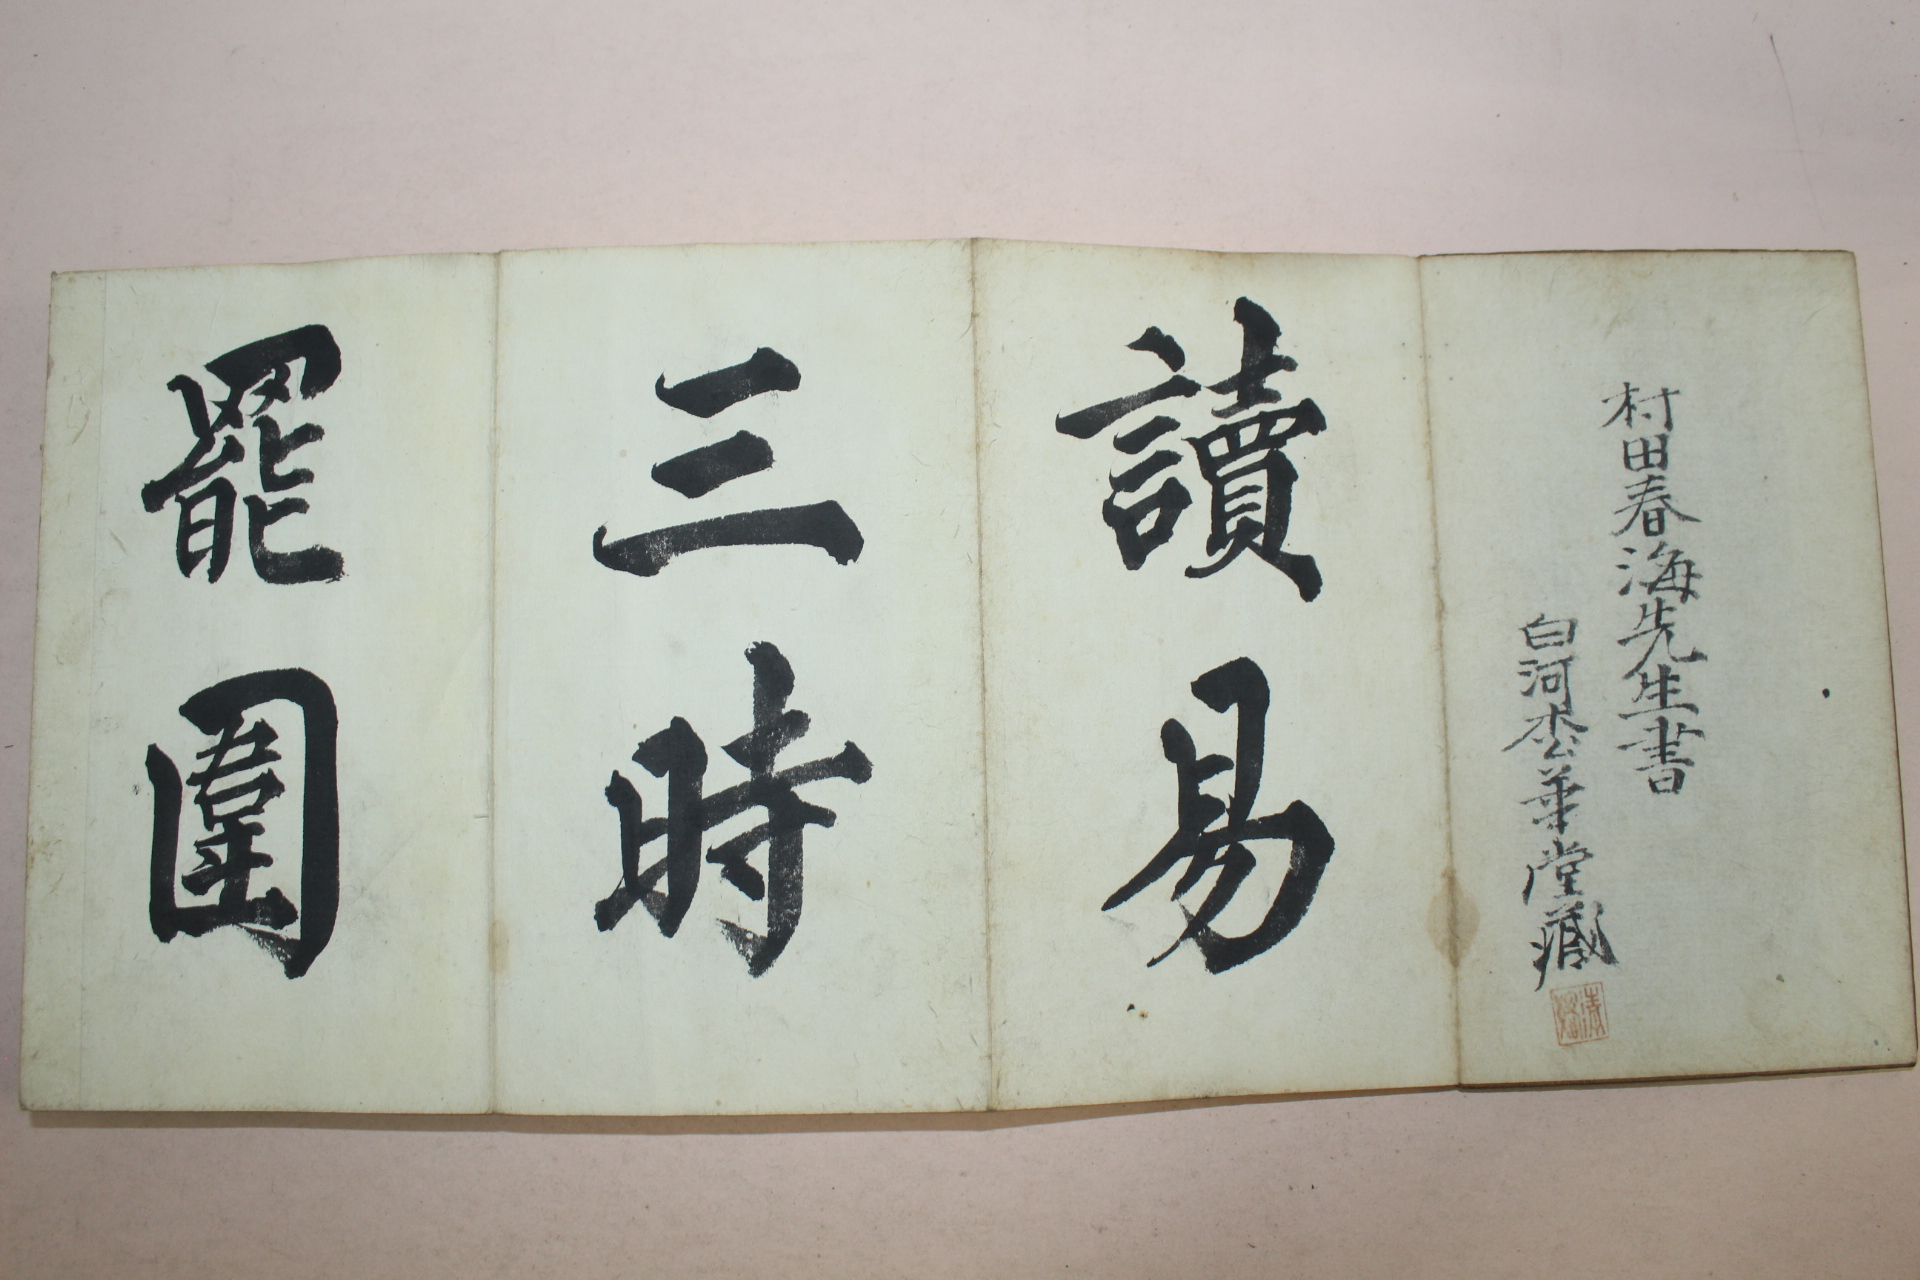 村田春海先生書
白河松華堂藏
讀易
三時
罷圍